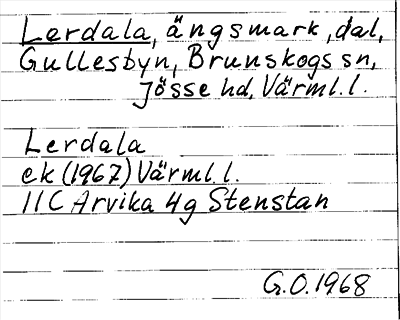 Lerdala, ängsmark, dal,
Gullesbyn, Brunskogs sn,
Jösse hd, Värml. l.
Lerdala
ek (1967) Värml. l.
11C Arvika 4g Stenstan
G.O. 1968